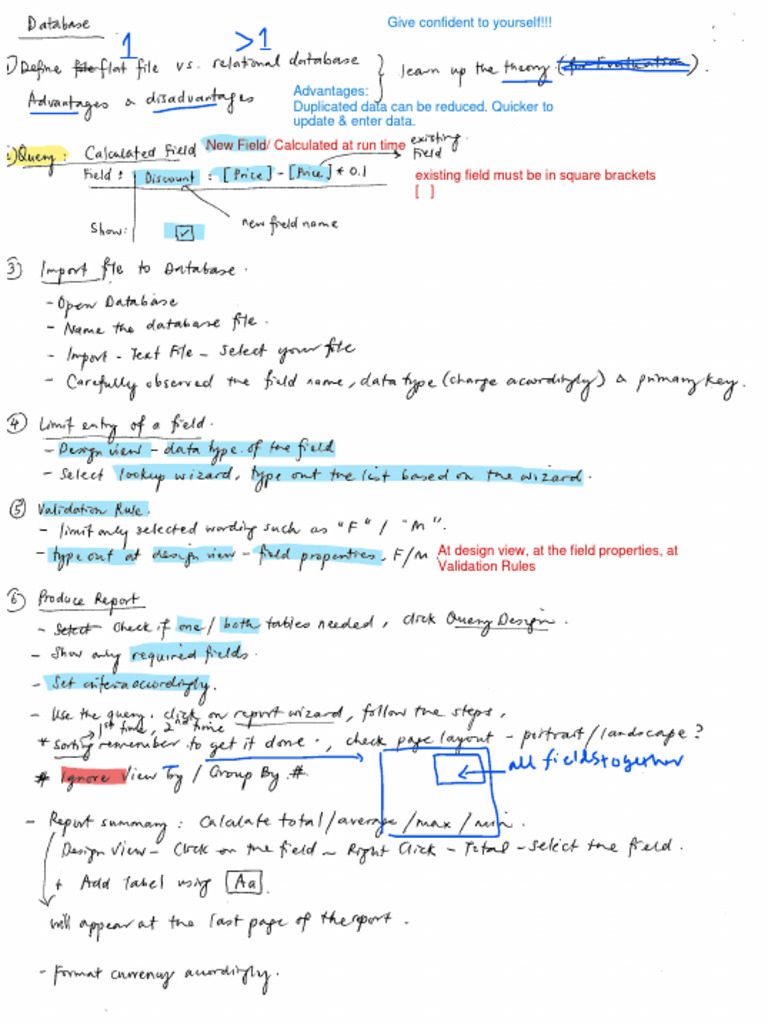 Database
Give confident to yourself!!!
1 >1
1) Define file flat file vs. relational database } learn up the theory. (for Evaluation).
Advantages & disadvantages
Advantages:
Duplicated data can be reduced. Quicker to
update & enter data.
2) Query: Calculated Field New Field/ Calculated at run time existing field
Field: Discount : [Price] - [Price] * 0.1
existing field must be in square brackets
[ ]
Show: ☑ new field name
3) Import file to Database.
- Open Database
- Name the database file.
- Import - Text File - Select your file
- Carefully observed the field name, data type (change accordingly) & primary key.
4) Limit entry of a field.
- Design view - data type of the field
- Select lookup wizard, type out the list based on the wizard.
5) Validation Rule.
- limit only selected wording such as "F" / "M".
- type out at design view - field properties. F/M
At design view, at the field properties, at
Validation Rules
6) Produce Report
- Select Check if one / both tables needed, click Query Design.
- Show only required fields.
- Set criteria accordingly.
- Use the query. click on report wizard, follow the steps,
1st time, 2nd time
* sorting remember to get it done., check page layout - portrait/landscape?
* Ignore View By / Group By. #
all fields together
- Report summary: Calculate total/average/max/min.
Design View - Click on the field - Right Click - Total - Select the field.
+ Add label using Aa.
will appear at the last page of the report.
- Format currency accordingly.